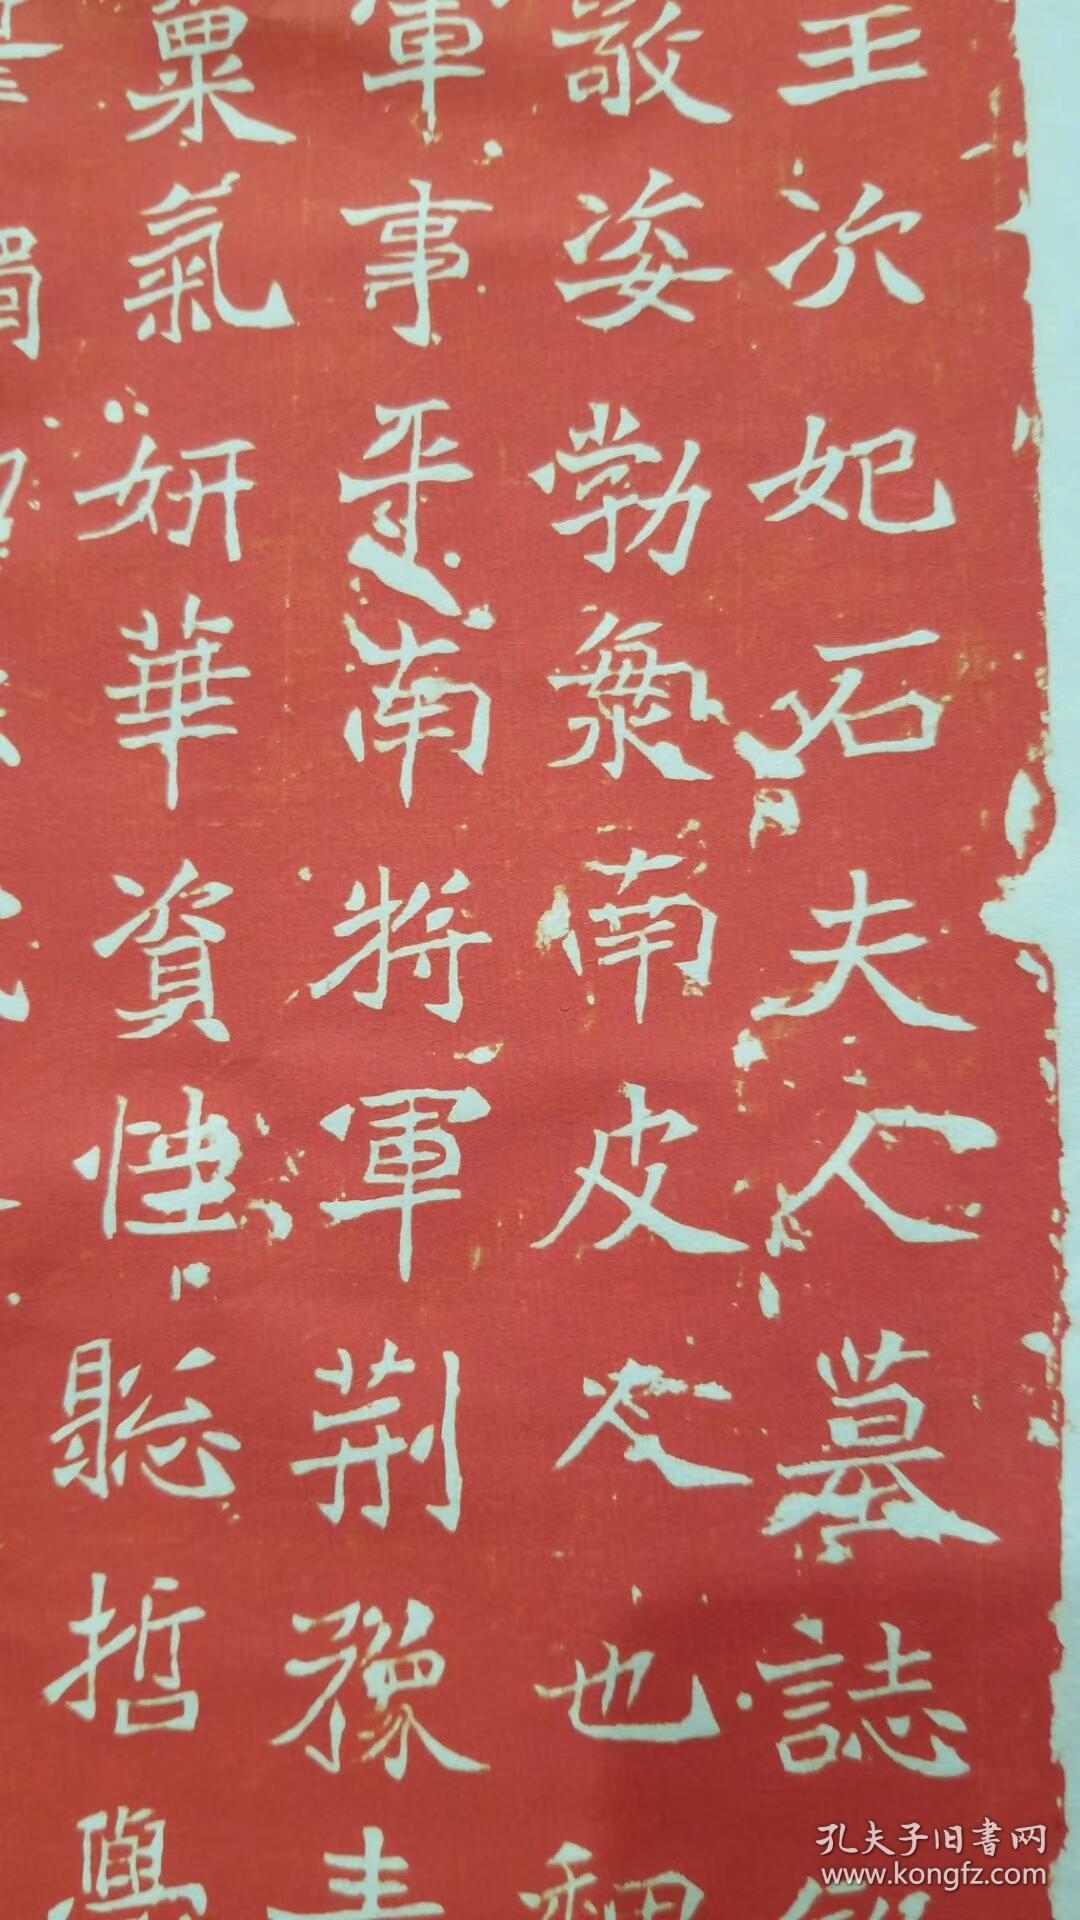 王次妃石夫人墓誌
敬姿勃海南皮人也
軍事平南將軍荊豫青
稟氣妍華資性聰哲
孔夫子旧書网
www.kongfz.com